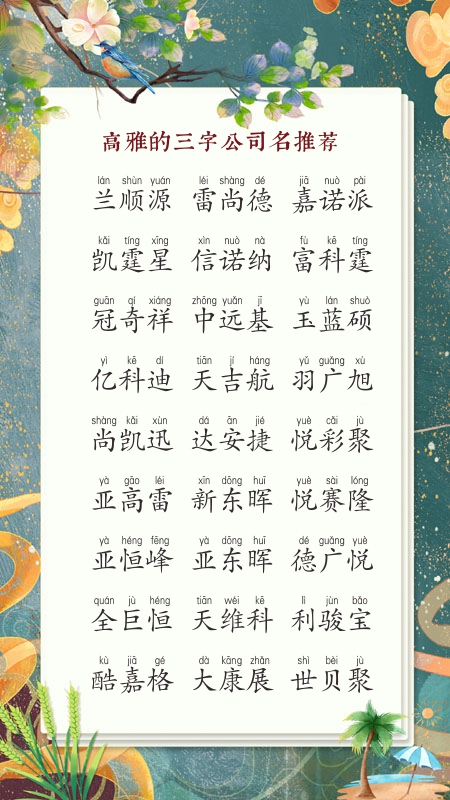 高雅的三字公司名推荐
lán shùn yuán léi shàng dé jiā nuò pài
兰顺源 雷尚德 嘉诺派
kǎi tíng xīng xìn nuò nà fù kē tíng
凯霆星 信诺纳 富科霆
guān qí xiáng zhōng yuǎn jī yù lán shuò
冠奇祥 中远基 玉蓝硕
yì kē dí tiān jí háng yǔ guǎng xù
亿科迪 天吉航 羽广旭
shàng kǎi xùn dá ān jié yuè cǎi jù
尚凯迅 达安捷 悦彩聚
yà gāo léi xīn dōng huī yuè sài lóng
亚高雷 新东晖 悦赛隆
yà héng fēng yà dōng huī dé guǎng yuè
亚恒峰 亚东晖 德广悦
quán jù héng tiān wéi kē lì jùn bǎo
全巨恒 天维科 利骏宝
kù jiā gé dà kāng zhǎn shì bèi jù
酷嘉格 大康展 世贝聚